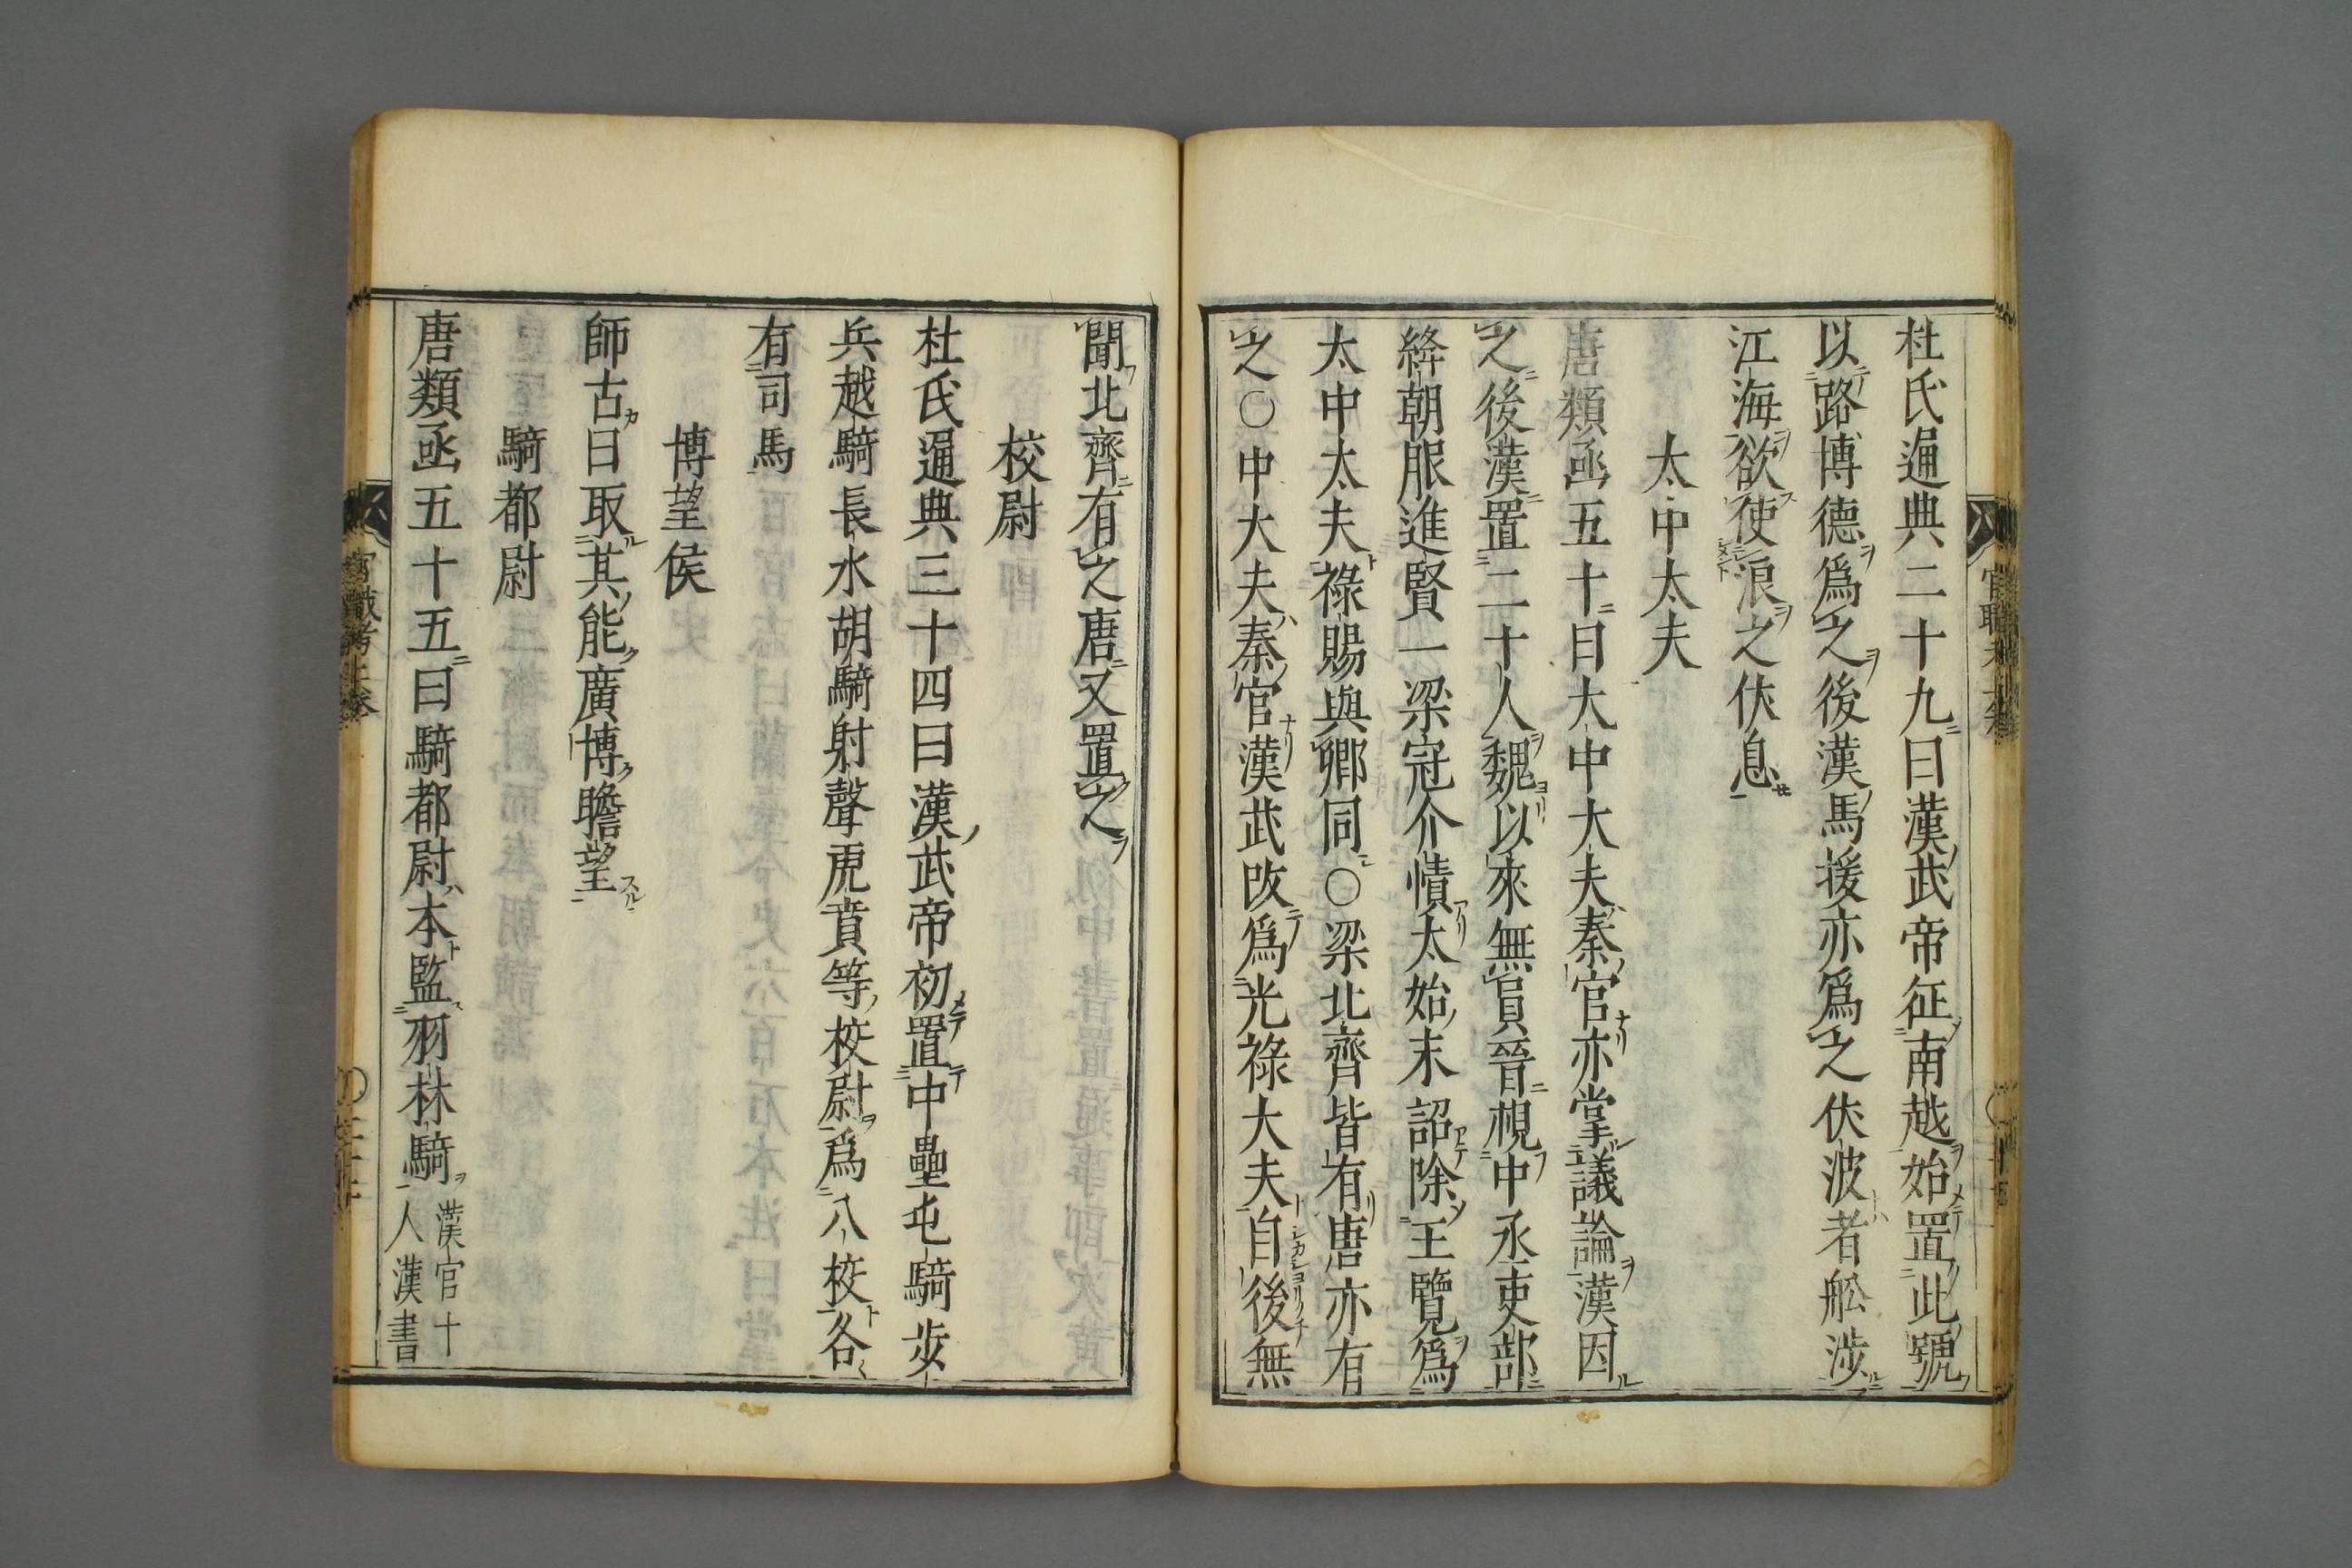 杜氏通典二十九曰漢武帝征南越始置此號
以路博德爲之後漢馬援亦爲之伏波者舩渉
江海欲使浪之伏息
太中太夫
唐類函五十曰大中大夫秦官亦掌議論漢因
之後漢置二十人魏以來無員晉視中丞吏部
絳朝服進賢一梁冠介幘太始末詔除王覽爲
太中太夫祿賜與卿同〇梁北齊皆有唐亦有
之〇中大夫秦官漢武改爲光祿大夫自後無
聞北齊有之唐又置之
校尉
杜氏通典三十四曰漢武帝初置中壘屯騎歩
兵越騎長水胡騎射聲虎賁等校尉爲八校各
有司馬
博望侯
師古曰取其能廣博瞻望
騎都尉
唐類函五十五曰騎都尉本監羽林騎漢官十
人漢書
官職考上卷